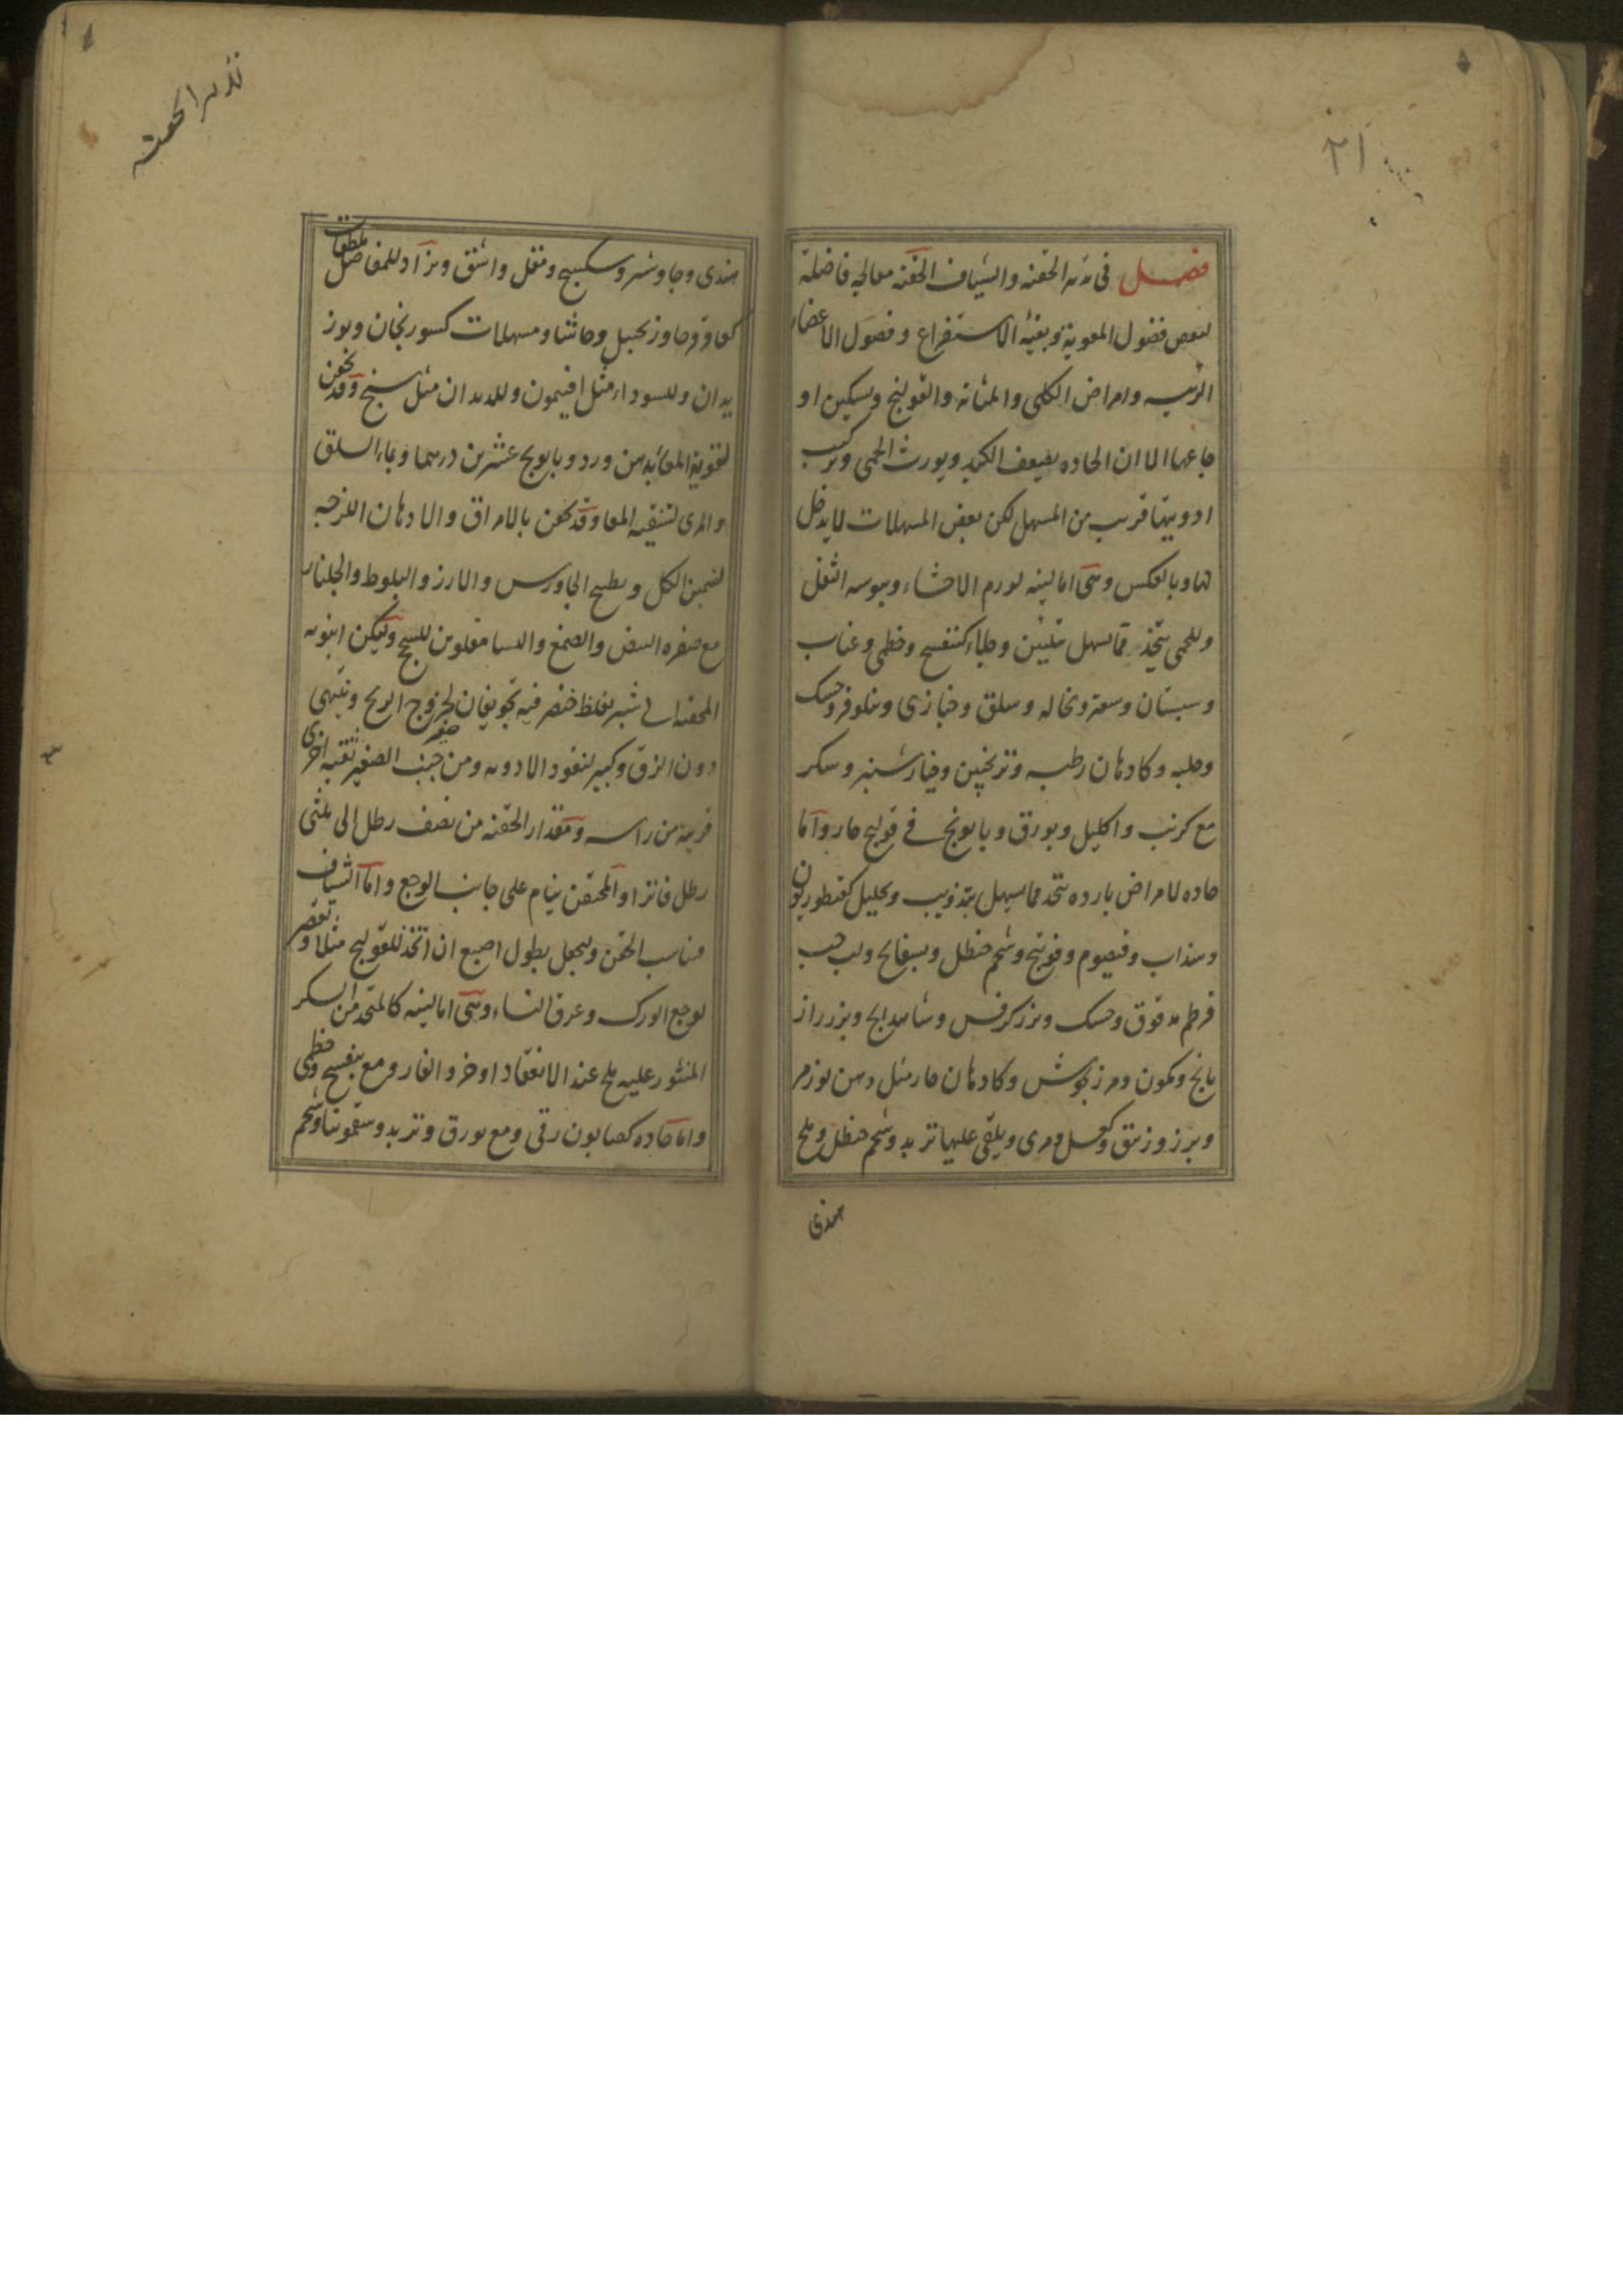 ۲۱
فصل فى تدبير الحقنه والشياف الحقنه معالجه فاضلة
لنفض فضول المعوية وبقية الاستفراغ وفضول الاعضاء
الرئيسه وامراض الكلى والمثانه والقولنج وتسكين او
جاعها الا ان الحاده يضعف الكبد ويورث الحمى وتركيب
ادويتها قريب من المسهل لكن بعض المسهلات لا يدخل
لها وبالعكس وهى اما لينه لورم الاحشاء ويبوسه الثفل
وللحمى يتخذ مما يسهل بتليين وجلاء كبنفسج وخطمى وعناب
وسبستان وسعتر ونخاله وسلق وخبازى ونيلوفر وحسك
وحلبه وكادهان رطبه وترنجبين وخيارشنبر وسكر
مع كرنب واكليل وبورق وبابونج فى قولنج حار واما
حاده لامراض بارده يتخذ مما يسهل بتذويب وتحليل كقنطوريون
وسذاب وقيصوم وفوتنج وشحم حنظل وبسفايج ولب حب
قرطم مدقوق وحسك وبزر كرفس وبزر راز
يانج وكمون ومرزنجوش وكادهان حار مثل دهن لوز مر
وزنبق وكعسل ومرى ويلقى عليها تربد وشحم حنظل وملح
هندى
تدبير الحقنه
هندى وجاوشير وسكبينج ومقل واشق ويزاد للمفاصل ملطفات
كعاقرقرحا وزنجبيل وحاشا ومسهلات كسورنجان وبوز
يدان وللسوداء مثل افتيمون وللديدان مثل وقد يحقن
لتقوية المعا بدهن ورد وبابونج عشرين درهما وبماء السلق
والمرى لتنقيه المعا وقد يحقن بالامراق والادهان اللزجه
لتسمين الكلى وبطبيخ الجاورس والارز والبلوط والجلنار
مع صفره البيض والصمغ والنشا مقلوين للسحج وليكن انبوبه
المحقنه الى شبر بغلظ خنصر فيه تجويفان لخروج الريح وينتهى
دون الزق وكبير لنفوذ الادويه ومن جنب الصغير ثقبه اخرى
قريبه من راسه ومقدار الحقنه من نصف رطل الى ثلثى
رطل فاترا والمحتقن ينام على جانب الوجع واما الشياف
فناسب الحقن ويجعل بطول اصبع ان اتخذ للقولنج مثلا وتقصر
لوجع الورك وعرق النساء وهى اما لينه كالمتخذ من السكر
المنثور عليه ملح عند الانعقاد او خرو الفار ومع بنفسج وخطمى
واما حاده كصابون رقى ومع بورق وتربد وسقمونيا وشحم